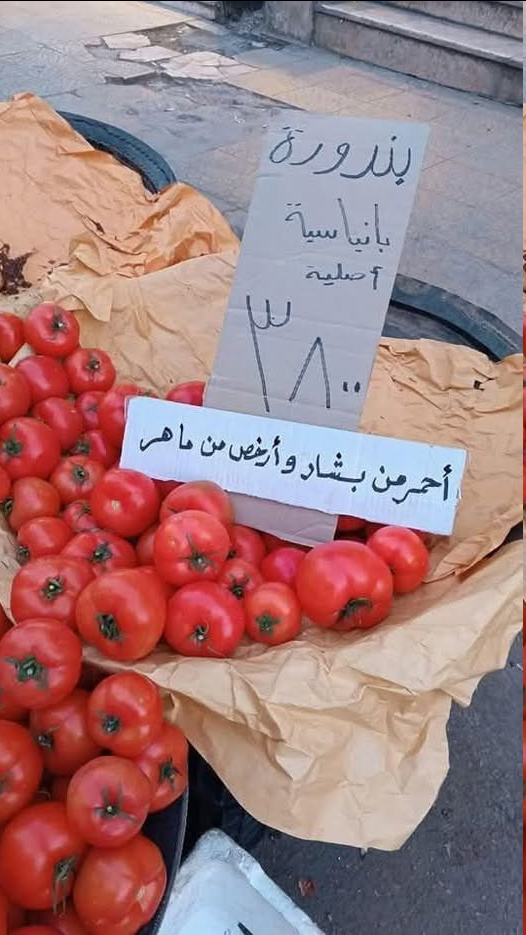 بندورة
بانياسية
أصلية
٣٨٠٠
أحمر من بشار وأرخص من ماهر